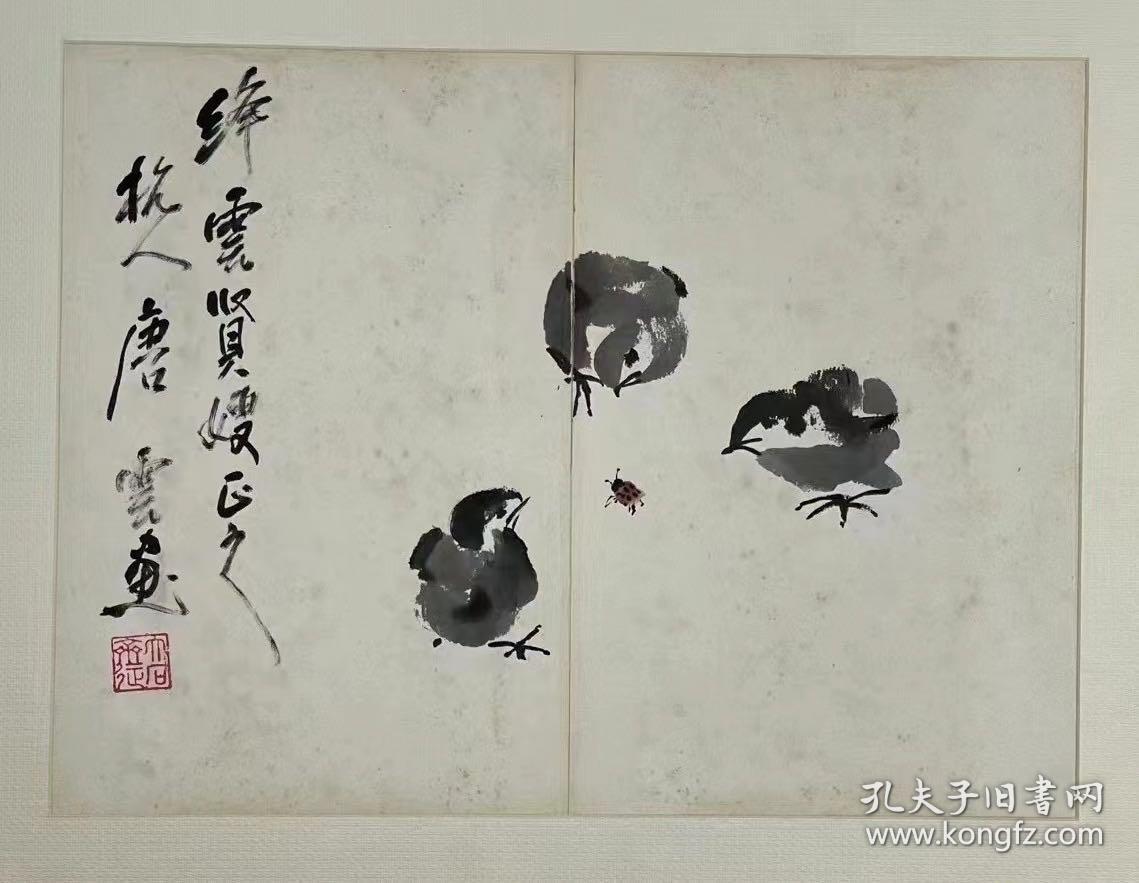 絳雲賢嫂正之
杭人唐雲畫
孔夫子旧書网
www.kongfz.com